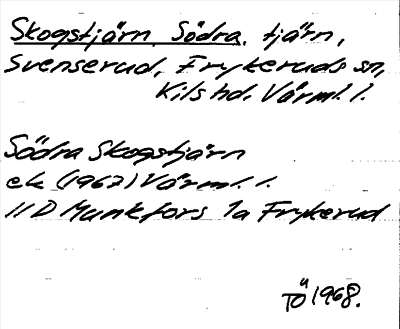 Skogstjärn, Södra, tjärn,
Svenserud, Frykeruds sn,
Kils hd. Värml. l.
Södra Skogstjärn
ek (1967) Värml. l.
11 D Munkfors 1a Frykerud
TÖ 1968.